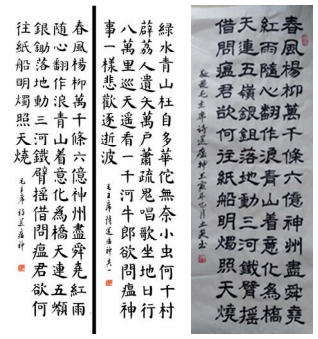 春風楊柳萬千條六億神州盡舜堯
紅雨隨心翻作浪青山着意化為橋
天連五嶺銀鋤落地動三河鐵臂摇
借問瘟君欲何往紙船明燭照天燒
毛主席詩送瘟神
綠水青山枉自多華佗無奈小虫何千村
薜荔人遺矢萬戶蕭疏鬼唱歌坐地日行
八萬里巡天遥看一千河牛郎欲問瘟神
事一樣悲歡逐逝波
毛主席詩送瘟神其一
春風楊柳萬千條六億神州盡舜堯紅雨
隨心翻作浪青山着意化為橋天連五嶺
銀鋤落地動三河鐵臂摇借問瘟君欲何
往紙船明燭照天燒
毛主席詩送瘟神